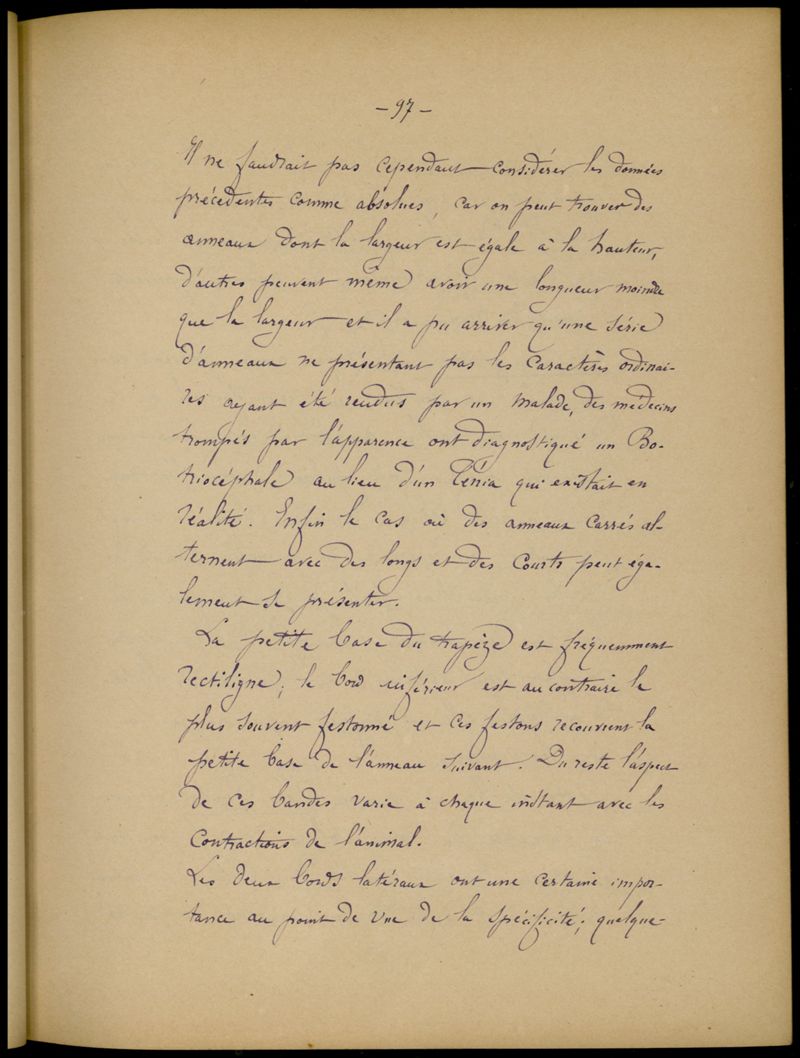 — 97 —
Il ne faudrait pas cependant considérer les données
précédentes comme absolues, car on peut trouver des
anneaux dont la largeur est égale à la hauteur,
d'autres peuvent même avoir une longueur moindre
que la largeur et il a pu arriver qu'une série
d'anneaux ne présentant pas les caractères ordinai-
res ayant été rendus par un malade, des médecins
trompés par l'apparence ont diagnostiqué un Bo-
triocéphale au lieu d'un Ténia qui existait en
réalité. Enfin le cas où des anneaux carrés al-
ternent avec des longs et des courts peut éga-
lement se présenter.
La petite base du trapèze est fréquemment
rectiligne; le bord inférieur est au contraire le
plus souvent festonné et ces festons recouvrent la
petite base de l'anneau suivant. Du reste l'aspect
de ces bandes varie à chaque instant avec les
contractions de l'animal.
Les deux bords latéraux ont une certaine impor-
tance au point de vue de la spécificité; quelque-